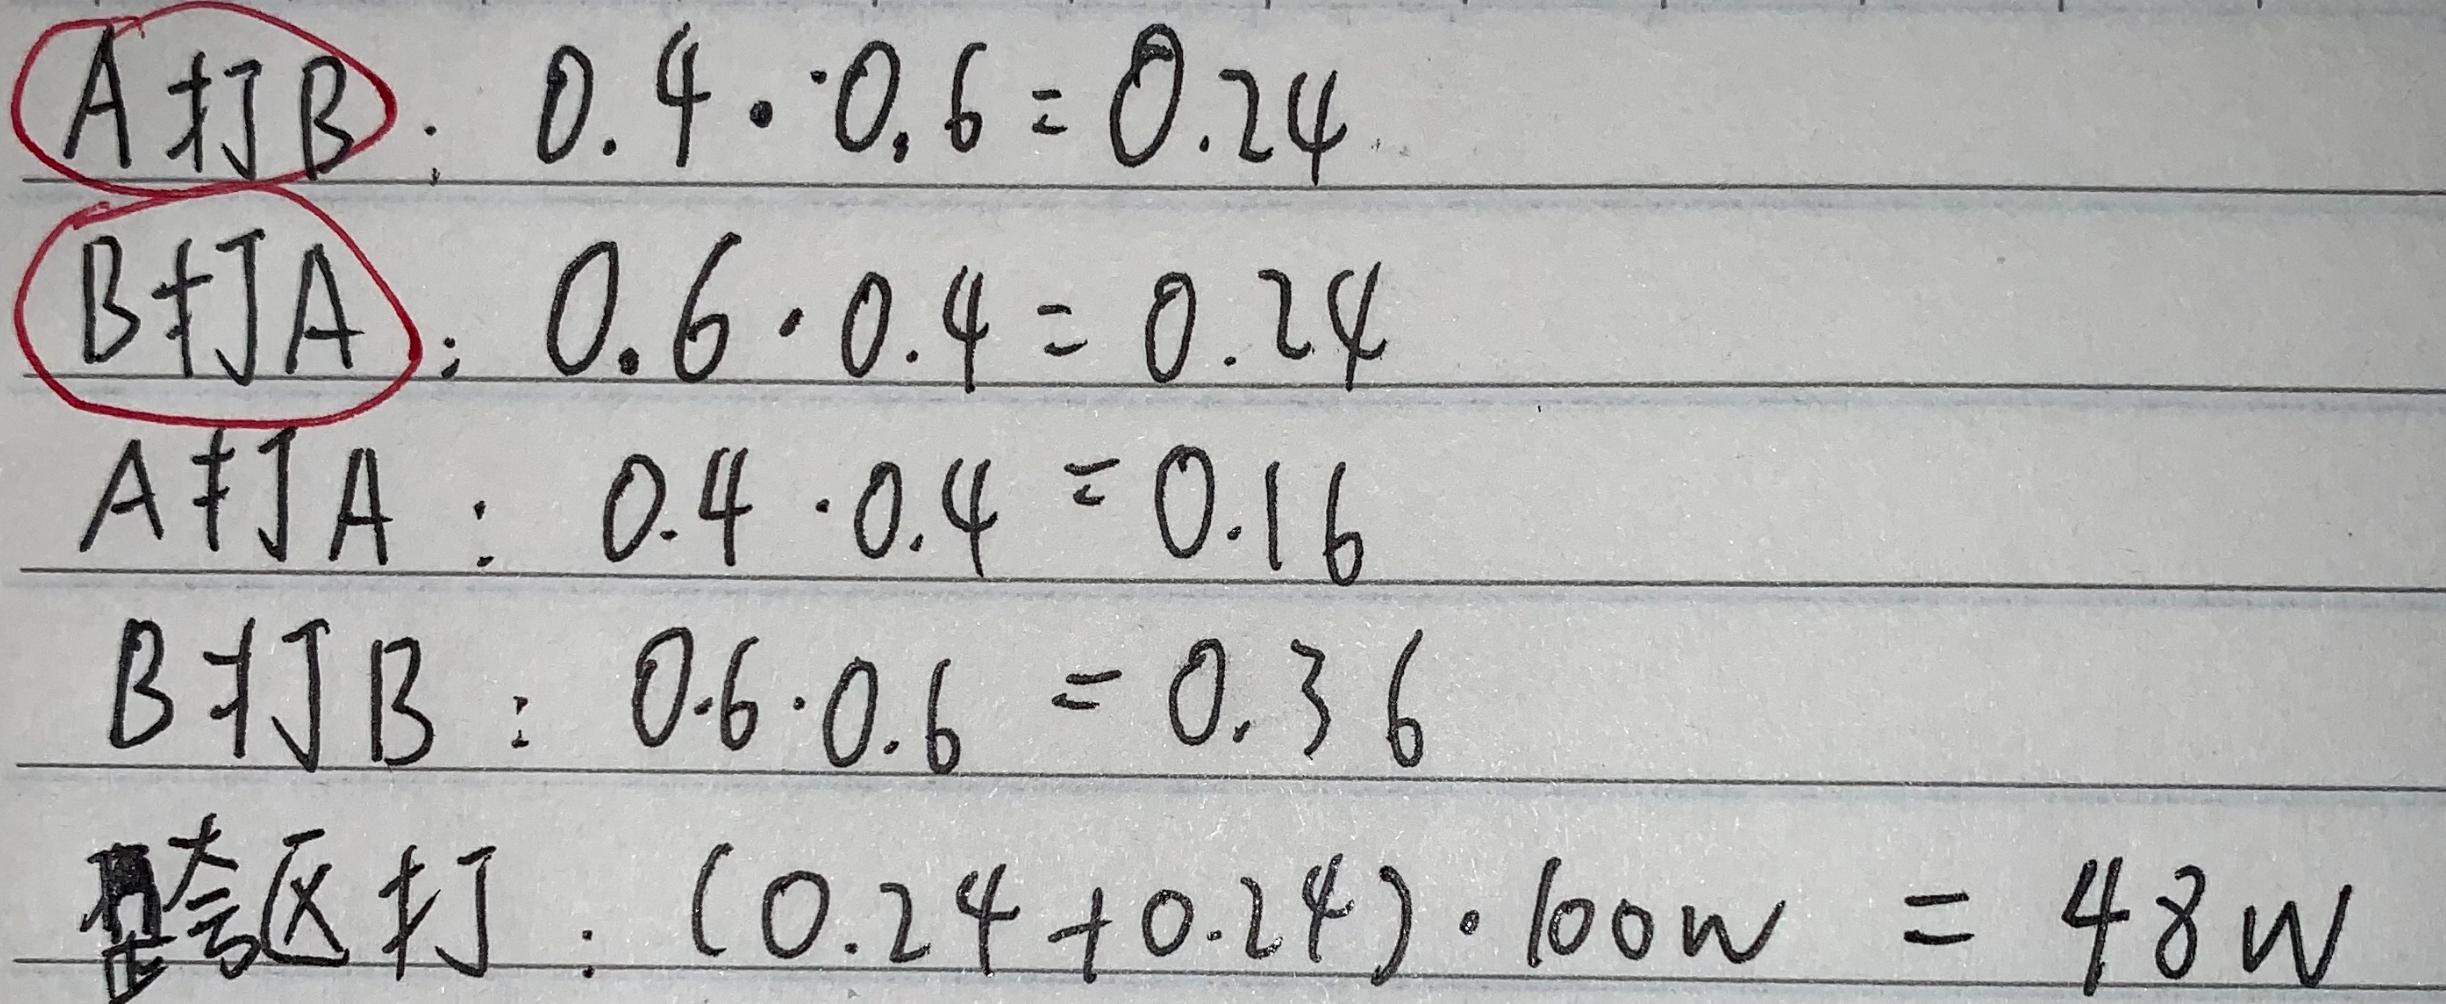 A打B: 0.4·0.6=0.24
B打A: 0.6·0.4=0.24
A打A: 0.4·0.4=0.16
B打B: 0.6·0.6=0.36
跨区打: (0.24+0.24)·100w=48w